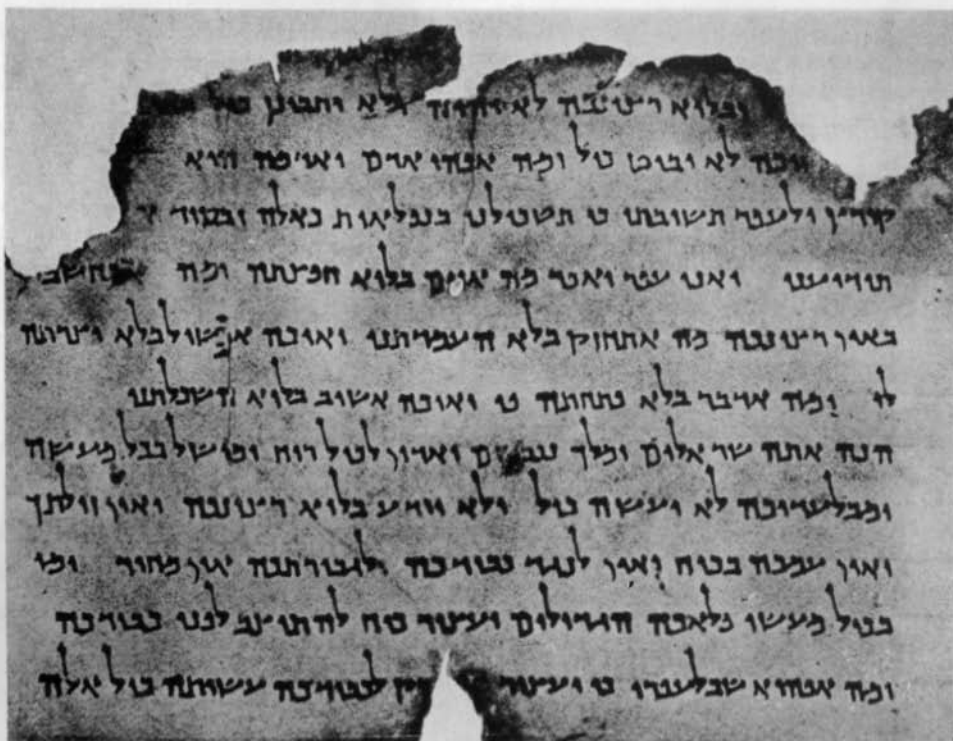 ובלוא רצונכה לא יהיה ולא יתבונן כול
יכה לא יביט כול ומה אפהו אדם ואדמה הוא
קורץ ולעפר תשובתו כי תשכילנו בנפלאות כאלה ובסוד א
תודיענו ואני עפר ואפר מה אזום בלוא חפצתה ומה אתחשב
באין רצונכה מה אתחזק בלא העמדתני ואיכה אכשול בלא יצרתה
לי ומה אדבר בלא פתחתה פי ואיכה אשיב בלוא השכלתני
הנה אתה שר אלים ומלך נכבדים ואדון לכול רוח ומושל בכל מעשה
ומבלעדיכה לא יעשה כול ולא יודע בלוא רצונכה ואין זולתך
ואין עמכה בכוח ואין לנגד כבודכה ולגבורתכה אין מחיר ומי
בכול מעשי פלאכה הגדולים יעצור כוח להתיצב לפני כבודכה
ומה אפהוא שב לעפרו כי יעצור רק לכבודכה עשיתה כול אלה